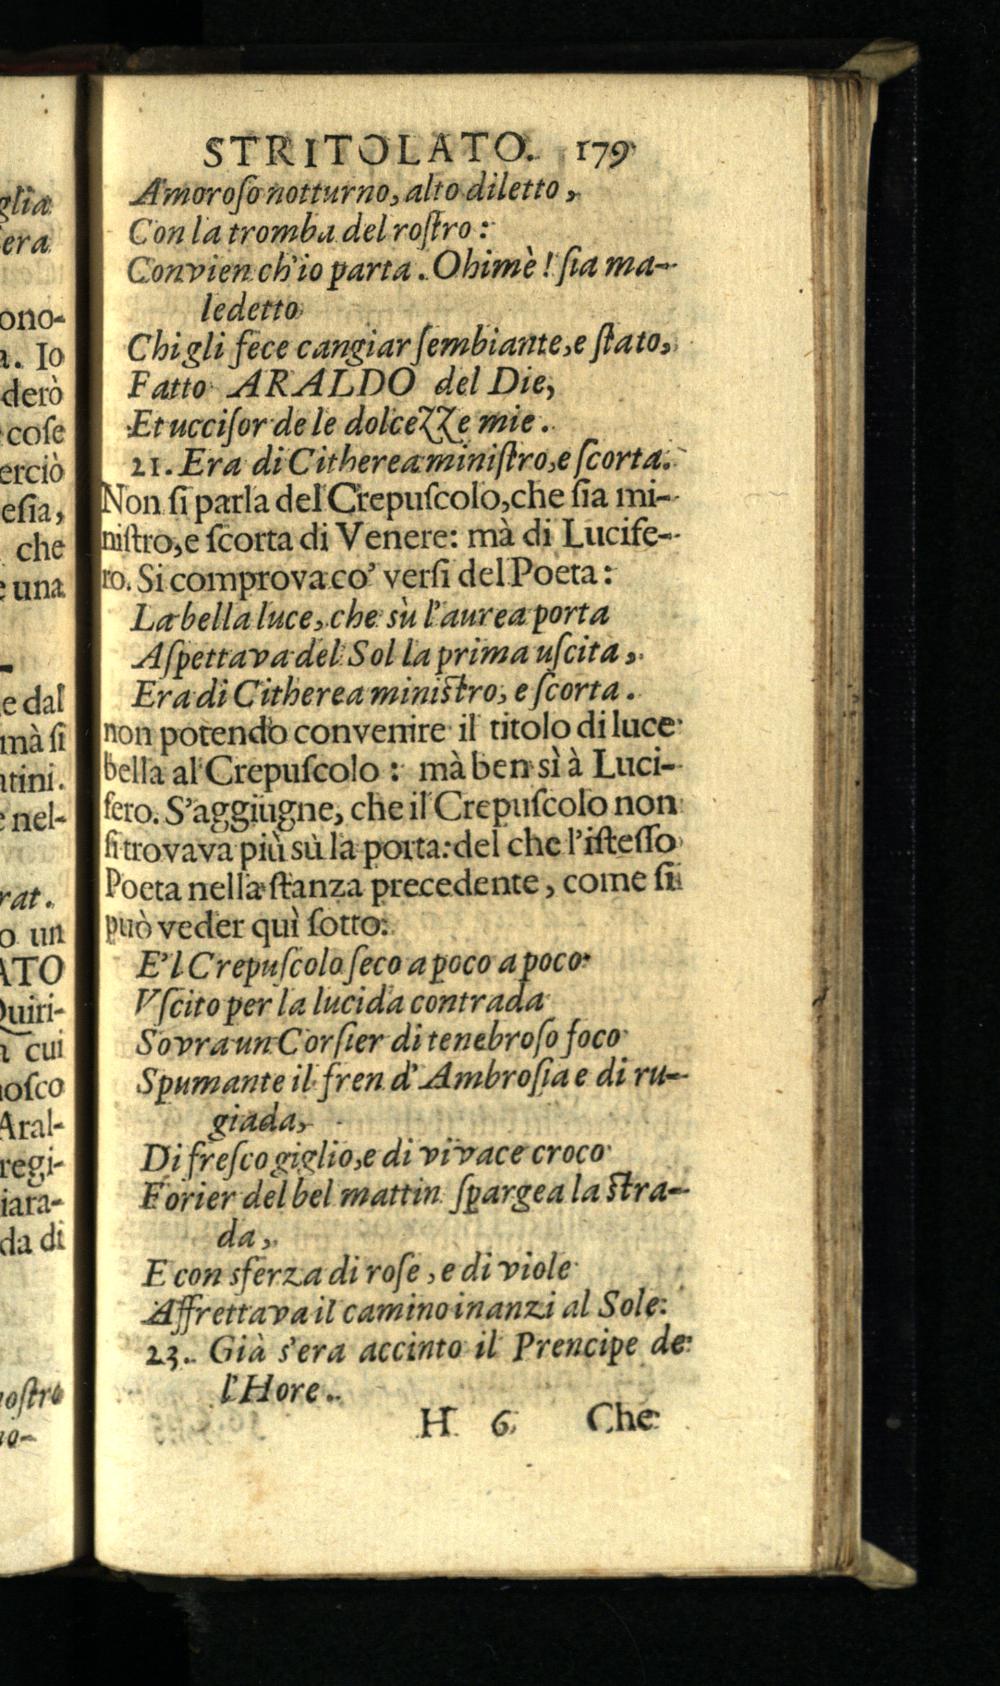 STRITOLATO. 179
Amoroſo notturno, alto diletto,
Con la tromba del roſtro:
Convien ch'io parta. Ohimè! ſia ma-
ledetto
Chi gli fece cangiar ſembiante, e ſtato,
Fatto ARALDO del Die,
Et ucciſor de le dolcezze mie.
21. Era di Citherea miniſtro, e ſcorta.
Non ſi parla del Crepuſcolo, che ſia mi-
niſtro, e ſcorta di Venere: mà di Lucife-
ro. Si comprova co' verſi del Poeta:
La bella luce, che sù l'aurea porta
Aſpettava del Sol la prima uſcita,
Era di Citherea miniſtro, e ſcorta.
non potendo convenire il titolo di luce
bella al Crepuſcolo: mà ben sì à Luci-
fero. S'aggiugne, che il Crepuſcolo non
ſi trovava più sù la porta: del che l'iſteſſo
Poeta nella ſtanza precedente, come ſi
può veder quì ſotto:
E'l Crepuſcolo ſeco a poco a poco
Vſcito per la lucida contrada
Sovra un Corſier di tenebroſo foco
Spumante il fren d'Ambroſia e di ru-
giada,
Di freſco giglio, e di vivace croco
Forier del bel mattin ſpargea la ſtra-
da,
E con sferza di roſe, e di viole
Affrettava il camino inanzi al Sole.
23. Già s'era accinto il Prencipe de
l'Hore.
H 6 Che
glia
era
ono-
a. Io
derò
coſe
erciò
eſia,
che
e una
e dal
mà ſi
atini.
e nel-
rat.
o un
ATO
Quiri-
a cui
noſco
Aral-
regi-
iara-
da di
noſtro
no-